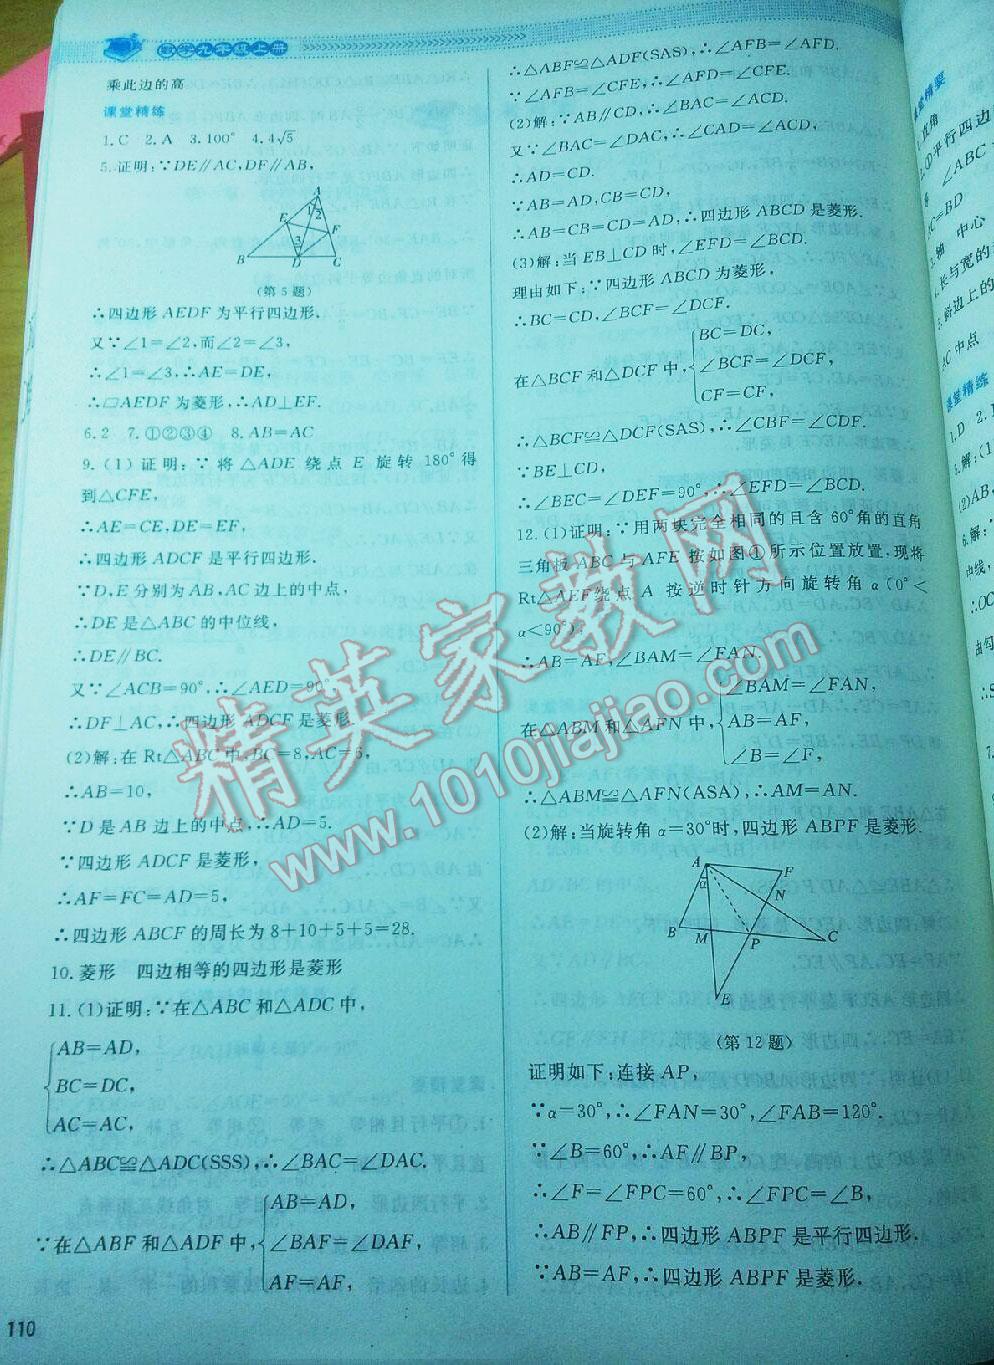 数学九年级上册
乘此边的高
课堂精练
1.C 2.A 3.100° 4.4√5
5.证明:∵DE∥AC,DF∥AB,
A
1
2
E
F
3
B
D
C
(第5题)
∴四边形AEDF为平行四边形.
又∵∠1=∠2,而∠2=∠3,
∴∠1=∠3,∴AE=DE,
∴▱AEDF为菱形,∴AD⊥EF.
6.2 7.①②③④ 8.AB=AC
9.(1)证明:∵将△ADE绕点E旋转180°得
到△CFE,
∴AE=CE,DE=EF,
∴四边形ADCF是平行四边形.
∵D,E分别为AB,AC边上的中点,
∴DE是△ABC的中位线,
∴DE∥BC.
又∵∠ACB=90°,∴∠AED=90°,
∴DF⊥AC,∴四边形ADCF是菱形.
(2)解:在Rt△ABC中,BC=8,AC=6,
∴AB=10,
∵D是AB边上的中点,∴AD=5.
∵四边形ADCF是菱形,
∴AF=FC=AD=5,
∴四边形ABCF的周长为8+10+5+5=28.
10.菱形 四边相等的四边形是菱形
11.(1)证明:∵在△ABC和△ADC中,
AB=AD,
BC=DC,
AC=AC,
∴△ABC≌△ADC(SSS),∴∠BAC=∠DAC.
∵在△ABF和△ADF中,
AB=AD,
∠BAF=∠DAF,
AF=AF,
110
∴△ABF≌△ADF(SAS),∴∠AFB=∠AFD.
∵∠AFB=∠CFE,∴∠AFD=∠CFE.
(2)解:∵AB∥CD,∴∠BAC=∠ACD.
又∵∠BAC=∠DAC,∴∠DAC=∠ACD,
∴AD=CD.
∵AB=AD,CB=CD,
∴AB=CB=CD=AD,∴四边形ABCD是菱形.
(3)解:当EB⊥CD时,∠EFD=∠BCD.
理由如下:∵四边形ABCD为菱形,
∴BC=CD,∠BCF=∠DCF.
在△BCF和△DCF中,
BC=DC,
∠BCF=∠DCF,
CF=CF,
∴△BCF≌△DCF(SAS),∴∠CBF=∠CDF.
∵BE⊥CD,
∴∠BEC=∠DEF=90°,∴∠EFD=∠BCD.
12.(1)证明:∵用两块完全相同的且含60°角的直角
三角板ABC与AFE按如图①所示位置放置.现将
Rt△AEF绕点A按逆时针方向旋转角α(0°<
α<90°),
∴AB=AF,∠BAM=∠FAN.
在△ABM和△AFN中,
∠BAM=∠FAN,
AB=AF,
∠B=∠F,
∴△ABM≌△AFN(ASA),∴AM=AN.
(2)解:当旋转角α=30°时,四边形ABPF是菱形.
A
α
F
N
B
M
P
C
E
(第12题)
证明如下:连接AP,
∵α=30°,∴∠FAN=30°,∠FAB=120°.
∵∠B=60°,∴AF∥BP,
∴∠F=∠FPC=60°,∴∠FPC=∠B,
∴AB∥FP,∴四边形ABPF是平行四边形.
∵AB=AF,∴四边形ABPF是菱形.
精英家教网
www.1010jiajiao.com